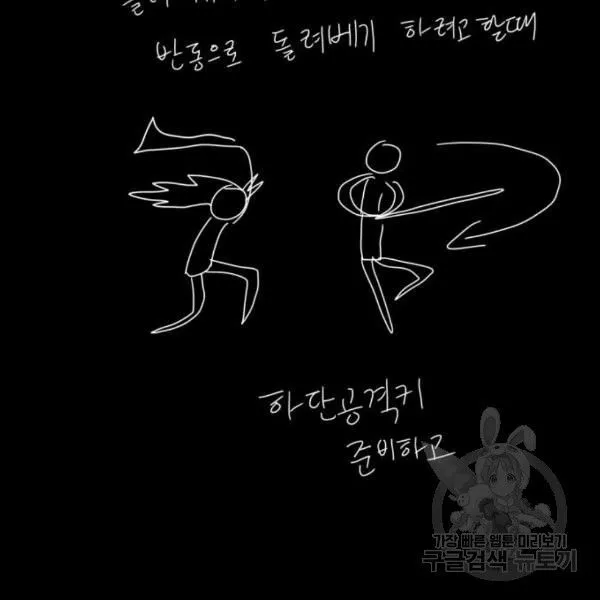 반동으로 돌려베기 하려고할때
하단공격키
준비하고
가장 빠른 웹툰 미리보기
구글검색 뉴토끼